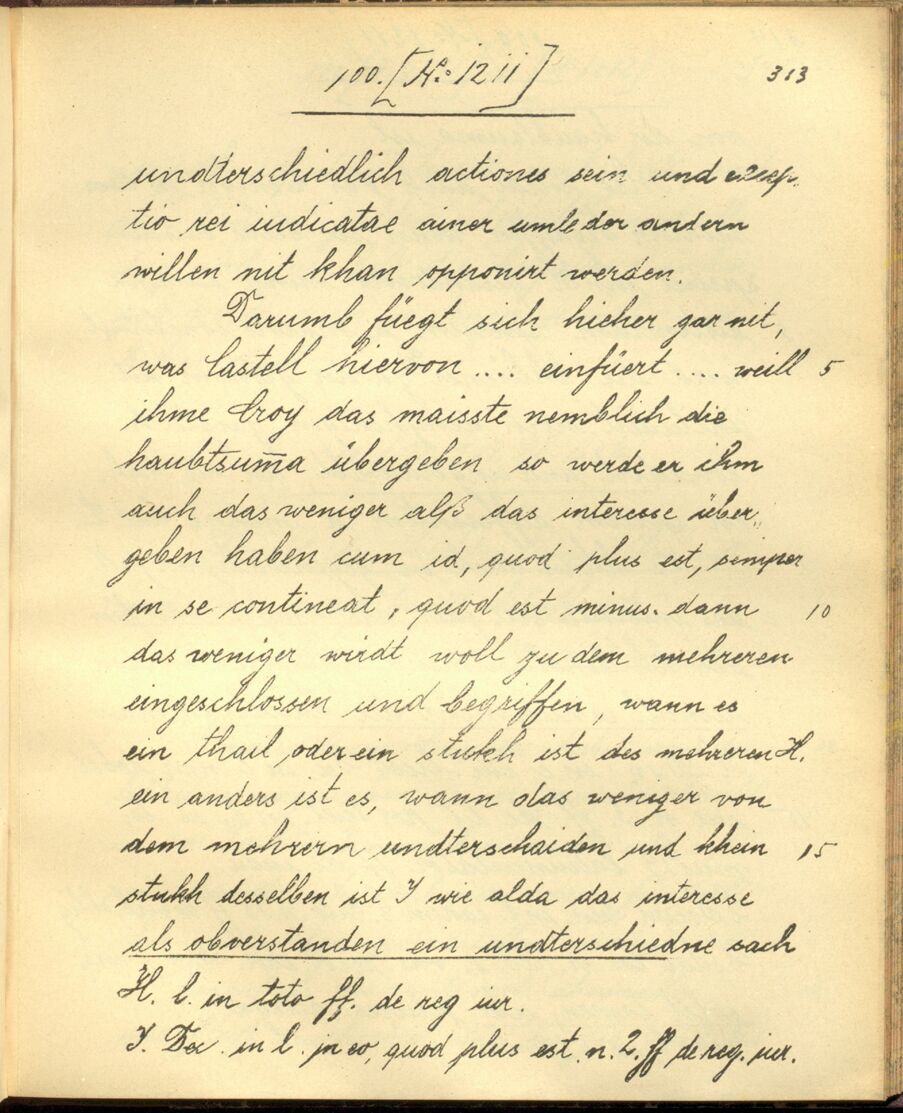 100. [No: 1211]
313
undterschiedlich actiones sein und excep„
tio rei iudicatae ainer umb der andern
willen nit khan opponirt werden.
Darumb füegt sich hieher gar nit,
was Castell hiervon .... einfüert .... weill 5
ihme Croy das maisste nemblich die
haubtsum̄a übergeben so werde er ihm
auch das weniger alß das interesse über„
geben haben cum id, quod plus est, semper
in se contineat, quod est minus. dann 10
das weniger wirdt woll zu dem mehreren
eingeschlossen und begriffen, wann es
ein thail oder ein stukh ist des mehreren H.
ein anders ist es, wann das weniger von
dem mehrern undterschaiden und khein 15
stukh desselben ist J wie alda das interesse
als obverstanden ein undterschiedne sach
H. l. in toto ff. de reg iur.
J. Dec. in l. in eo, quod plus est. n. 2. ff de reg. iur.